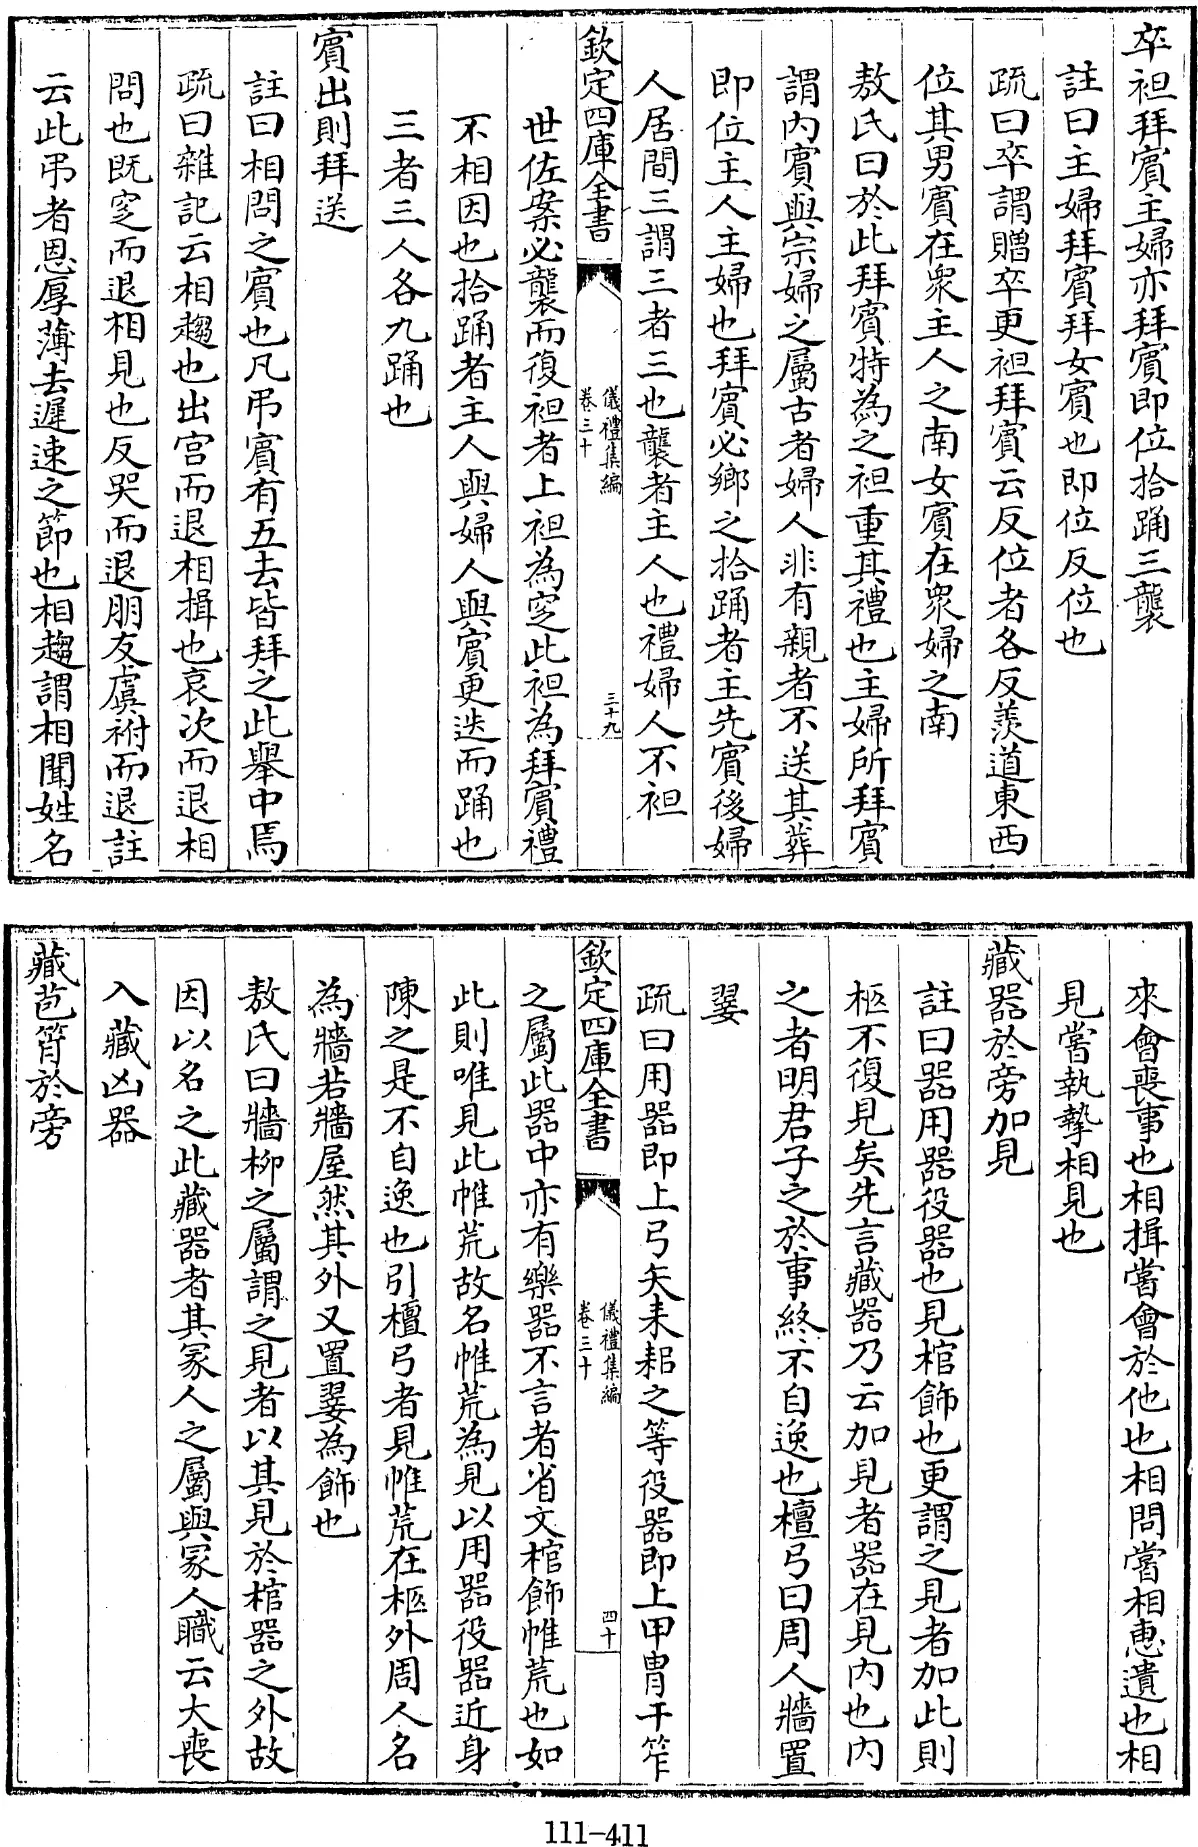 卒袒拜賓主婦亦拜賓即位拾踊三襲
註曰主婦拜賓拜女賓也即位反位也
疏曰卒謂贈卒更袒拜賓云反位者各反羨道東西
位其男賓在衆主人之南女賓在衆婦之南
敖氏曰於此拜賓特為之袒重其禮也主婦所拜賓
謂内賓與宗婦之屬古者婦人非有親者不送其葬
即位主人主婦也拜賓必鄉之拾踊者主先賓後婦
人居間三謂三者三也襲者主人也禮婦人不袒
欽定四庫全書
儀禮集編
卷三十
三十九
世佐案必襲而復袒者上袒為窆此袒為拜賓禮
不相因也拾踊者主人與婦人與賓更迭而踊也
三者三人各九踊也
賓出則拜送
註曰相問之賓也凡弔賓有五去皆拜之此舉中焉
疏曰雜記云相趨也出宫而退相揖也哀次而退相
問也既窆而退相見也反哭而退朋友虞祔而退註
云此弔者恩厚薄去遲速之節也相趨謂相聞姓名
來會喪事也相揖嘗會於他也相問嘗相恵遺也相
見嘗執摯相見也
藏器於旁加見
註曰器用器役器也見棺飾也更謂之見者加此則
柩不復見矣先言藏器乃云加見者器在見内也内
之者明君子之於事終不自逸也檀弓曰周人牆置
翣
疏曰用器即上弓矢耒耜之等役器即上甲胄干笮
欽定四庫全書
儀禮集編
卷三十
四十
之屬此器中亦有樂器不言者省文棺飾帷荒也如
此則唯見此帷荒故名帷荒為見以用器役器近身
陳之是不自逸也引檀弓者見帷荒在柩外周人名
為牆若牆屋然其外又置翣為飾也
敖氏曰牆栁之屬謂之見者以其見於棺器之外故
因以名之此藏器者其冢人之屬與冢人職云大喪
入藏凶器
藏苞筲於旁
111-411